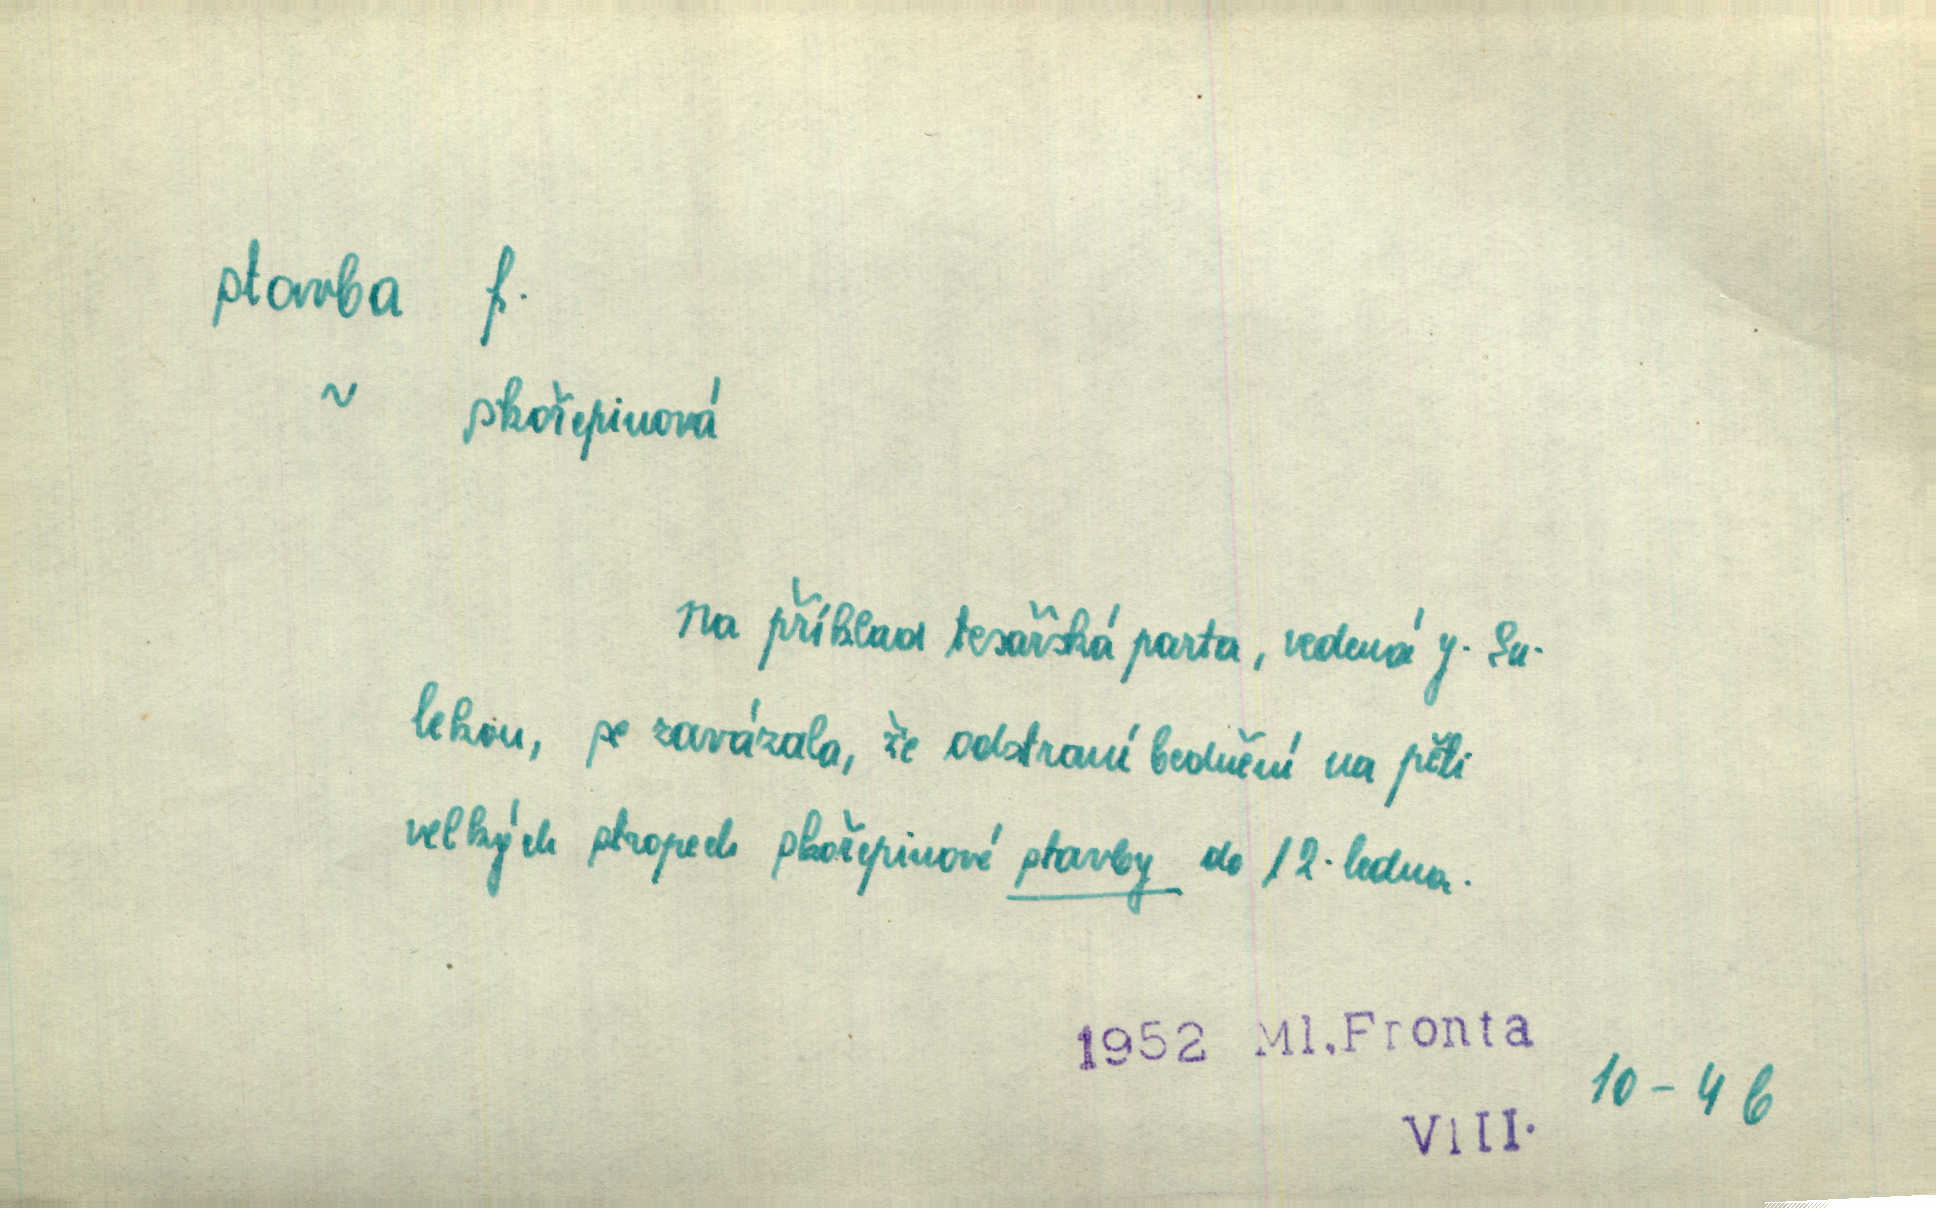 stavba f.
~ skořepinová
Na příklad tesařská parta, vedená y. Su-
lekou, se zavázala, že odstraní bednění na pěti
velkých stropech skořepinové stavby do 12. ledna.
1952 Ml.Fronta
10 - 4 b
VIII.